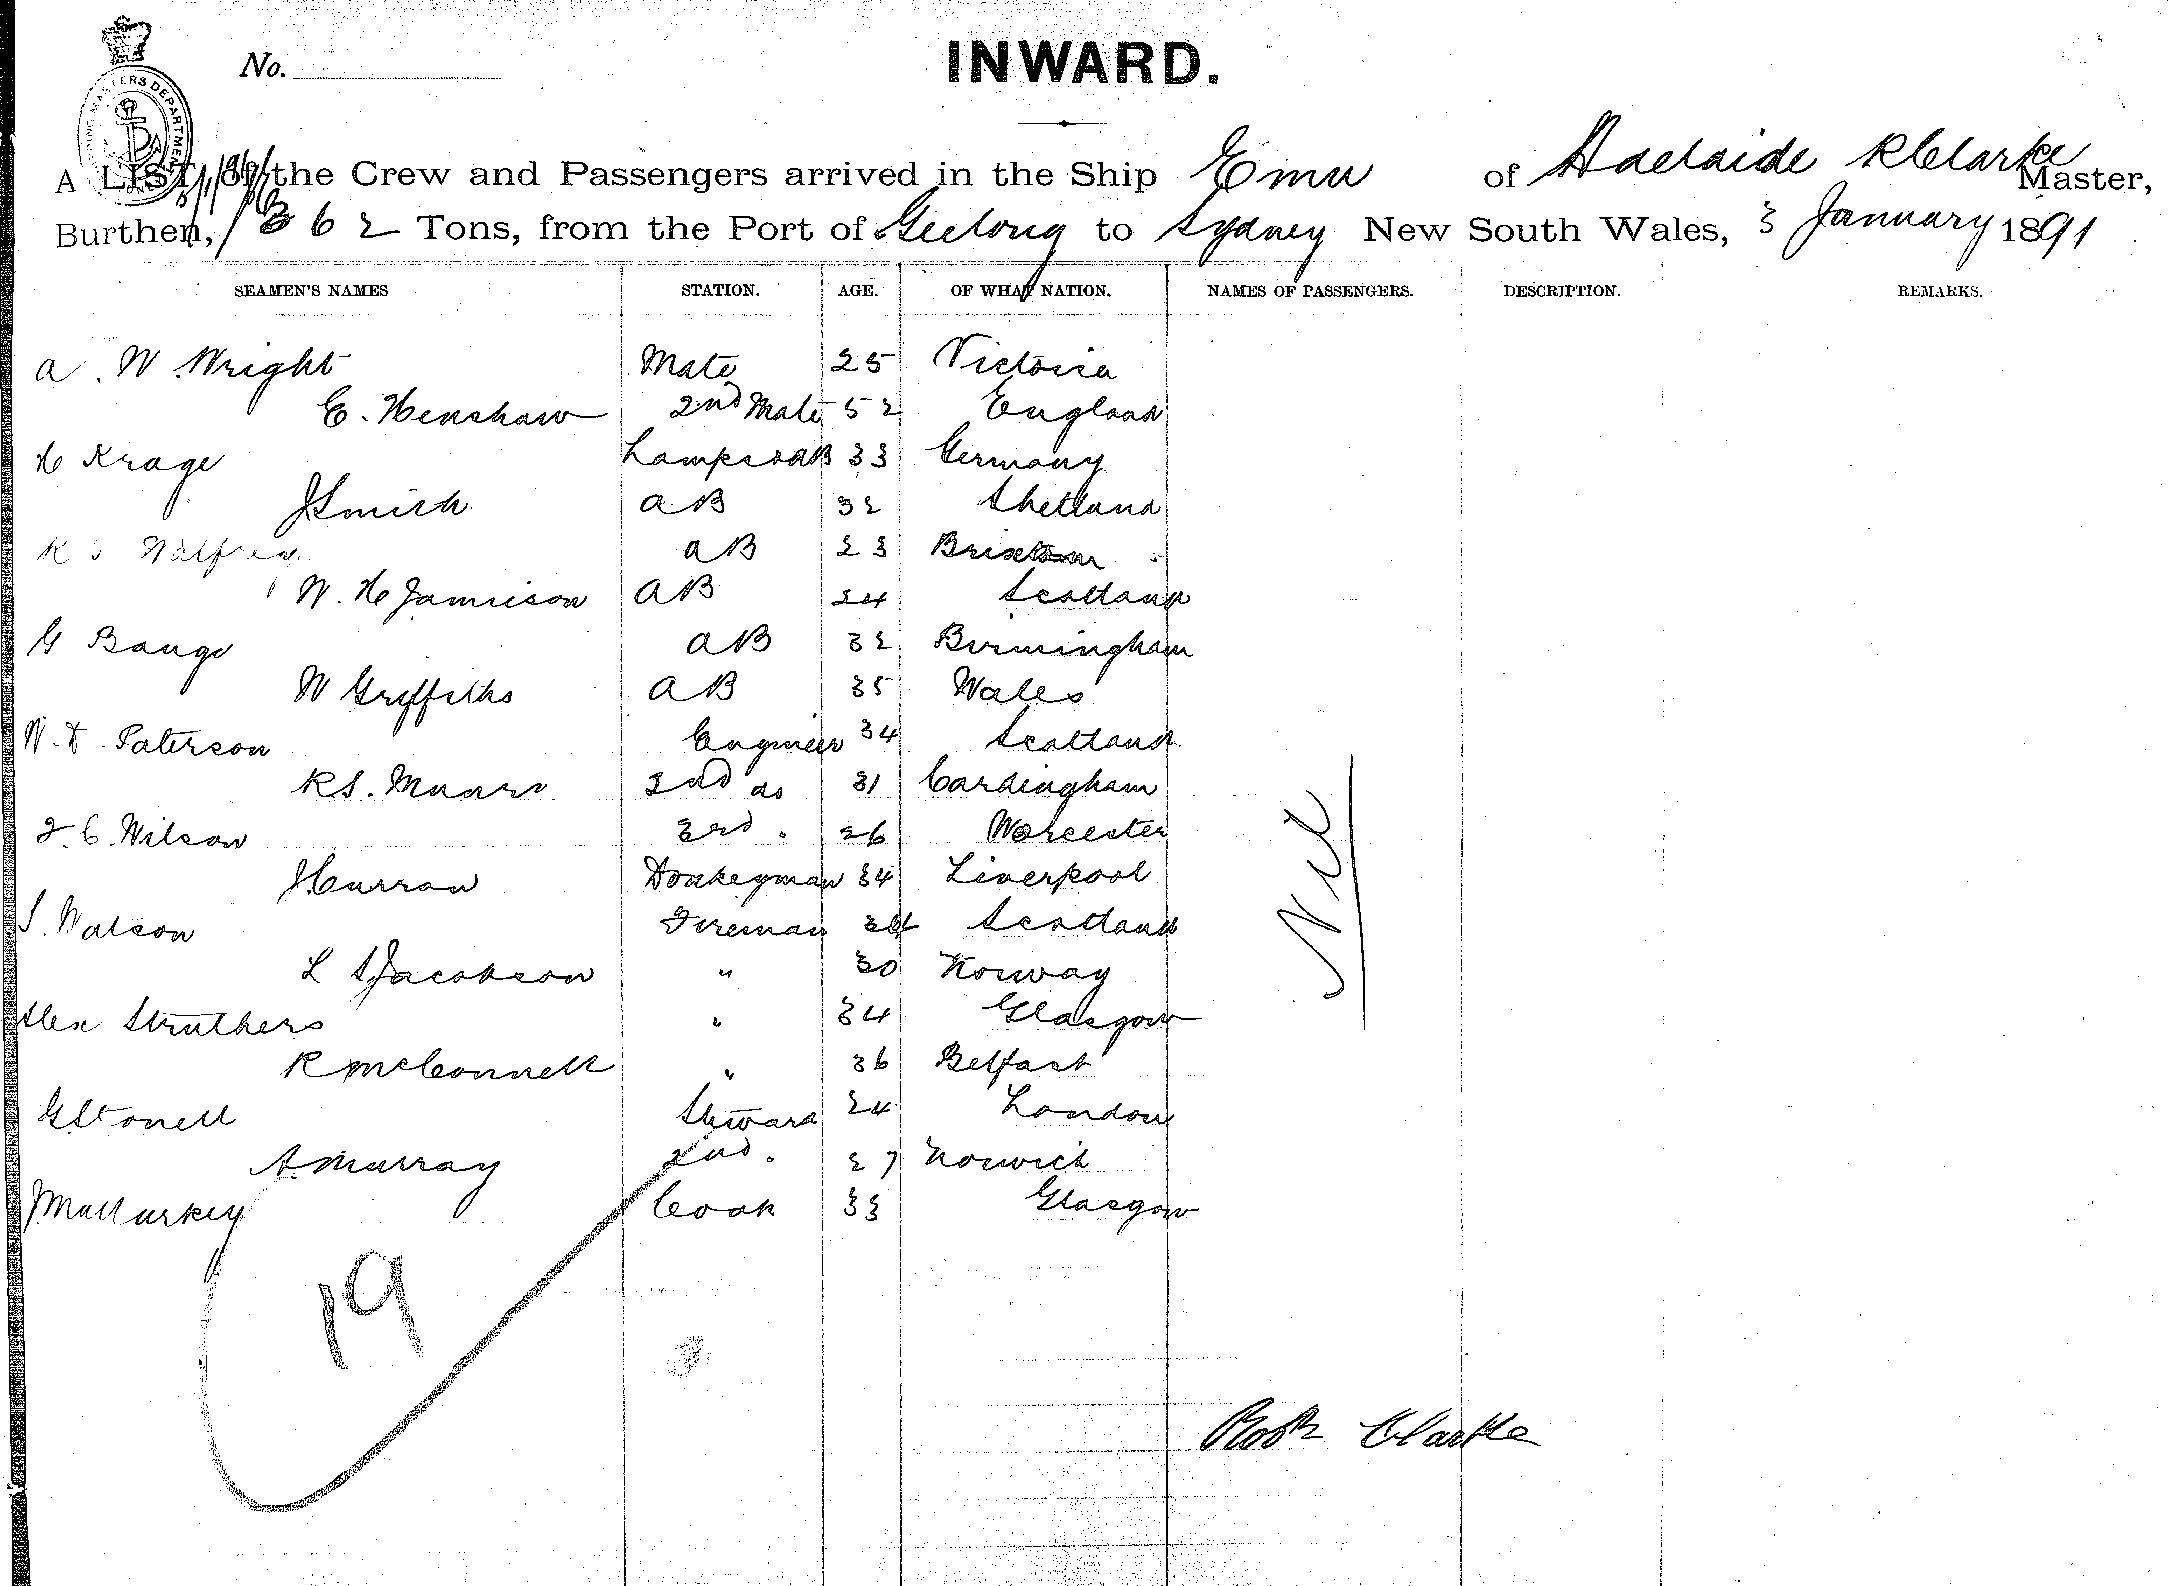 No.
INWARD.
A LIST of the Crew and Passengers arrived in the Ship Emu of Adelaide R Clarke Master,
Burthen, 1362 Tons, from the Port of Geelong to Sydney New South Wales, 3 January 1891
SEAMEN'S NAMES STATION. AGE. OF WHAT NATION. NAMES OF PASSENGERS. DESCRIPTION. REMARKS.
A. W. Wright Mate 25 Victoria
E. Henshaw 2nd Mate 52 England
H Krage Lamps & AB 33 Germany
J Smith AB 32 Shetland
AB 23 Brixton
W. H Jamieson AB 24 Scotland
G Bange AB 32 Birmingham
W Griffiths AB 35 Wales
Paterson Engineer 34 Scotland
R S. Munro 2nd do 31 Cardingham
Wilson 3rd " 26 Worcester
J Curran Donkeyman 34 Liverpool
Watson Fireman Scotland
L S Jacobson " 30 Norway
Alex Struthers " 34 Glasgow
R McConnell " 36 Belfast
G Stonell Steward 24 London
A. Murray 2nd " 27 Norwich
Cook 33 Glasgow
Nil
19
Robt Clarke